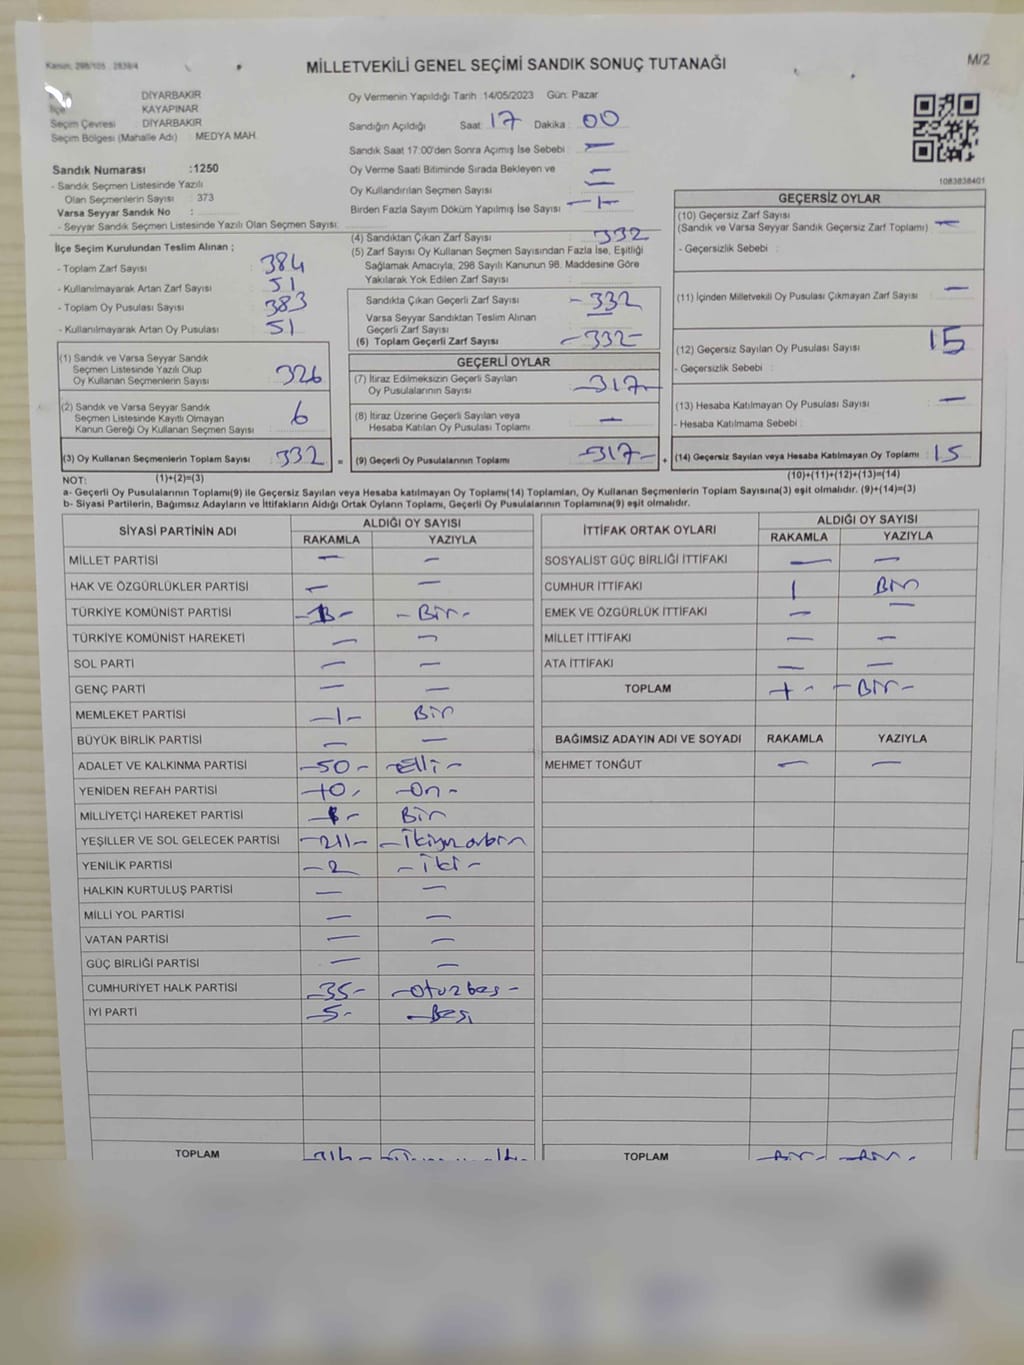 Kanun: 298/105 , 2839/4
MİLLETVEKİLİ GENEL SEÇİMİ SANDIK SONUÇ TUTANAĞI
M/2
DİYARBAKIR
KAYAPINAR
Seçim Çevresi : DİYARBAKIR
Seçim Bölgesi (Mahalle Adı) : MEDYA MAH.
Oy Vermenin Yapıldığı Tarih :14/05/2023 Gün: Pazar
Sandığın Açıldığı Saat : 17 Dakika : 00
Sandık Saat 17:00'den Sonra Açımış İse Sebebi : —
Oy Verme Saati Bitiminde Sırada Bekleyen ve
Oy Kullandırılan Seçmen Sayısı : —
Birden Fazla Sayım Döküm Yapılmış İse Sayısı
1083838401
Sandık Numarası :1250
- Sandık Seçmen Listesinde Yazılı
Olan Seçmenlerin Sayısı : 373
Varsa Seyyar Sandık No :
- Seyyar Sandık Seçmen Listesinde Yazılı Olan Seçmen Sayısı:
İlçe Seçim Kurulundan Teslim Alınan ;
- Toplam Zarf Sayısı : 384
- Kullanılmayarak Artan Zarf Sayısı : 51
- Toplam Oy Pusulası Sayısı : 383
- Kullanılmayarak Artan Oy Pusulası : 51
(1) Sandık ve Varsa Seyyar Sandık
Seçmen Listesinde Yazılı Olup
Oy Kullanan Seçmenlerin Sayısı : 326
(2) Sandık ve Varsa Seyyar Sandık
Seçmen Listesinde Kayıtlı Olmayan
Kanun Gereği Oy Kullanan Seçmen Sayısı : 6
(3) Oy Kullanan Seçmenlerin Toplam Sayısı : 332
(1)+(2)=(3)
(4) Sandıktan Çıkan Zarf Sayısı : 332
(5) Zarf Sayısı Oy Kullanan Seçmen Sayısından Fazla İse, Eşitliği
Sağlamak Amacıyla, 298 Sayılı Kanunun 98. Maddesine Göre
Yakılarak Yok Edilen Zarf Sayısı :
Sandıkta Çıkan Geçerli Zarf Sayısı : -332
Varsa Seyyar Sandıktan Teslim Alınan
Geçerli Zarf Sayısı : —
(6) Toplam Geçerli Zarf Sayısı : -332-
GEÇERLİ OYLAR
(7) İtiraz Edilmeksizin Geçerli Sayılan
Oy Pusulalarının Sayısı : -317-
(8) İtiraz Üzerine Geçerli Sayılan veya
Hesaba Katılan Oy Pusulası Toplamı : —
= (9) Geçerli Oy Pusulalarının Toplamı : -317-
GEÇERSİZ OYLAR
(10) Geçersiz Zarf Sayısı
(Sandık ve Varsa Seyyar Sandık Geçersiz Zarf Toplamı) : —
- Geçersizlik Sebebi :
(11) İçinden Milletvekili Oy Pusulası Çıkmayan Zarf Sayısı : —
(12) Geçersiz Sayılan Oy Pusulası Sayısı : 15
- Geçersizlik Sebebi :
(13) Hesaba Katılmayan Oy Pusulası Sayısı : —
- Hesaba Katılmama Sebebi :
+ (14) Geçersiz Sayılan veya Hesaba Katılmayan Oy Toplamı : 15
(10)+(11)+(12)+(13)=(14)
NOT:
a- Geçerli Oy Pusulalarının Toplamı(9) ile Geçersiz Sayılan veya Hesaba katılmayan Oy Toplamı(14) Toplamları, Oy Kullanan Seçmenlerin Toplam Sayısına(3) eşit olmalıdır. (9)+(14)=(3)
b- Siyasi Partilerin, Bağımsız Adayların ve İttifakların Aldığı Ortak Oyların Toplamı, Geçerli Oy Pusulalarının Toplamına(9) eşit olmalıdır.
SİYASİ PARTİNİN ADI ALDIĞI OY SAYISI
RAKAMLA YAZIYLA
MİLLET PARTİSİ — —
HAK VE ÖZGÜRLÜKLER PARTİSİ — —
TÜRKİYE KOMÜNİST PARTİSİ -1- -Bir-
TÜRKİYE KOMÜNİST HAREKETİ — —
SOL PARTİ — —
GENÇ PARTİ — —
MEMLEKET PARTİSİ -1- Bir
BÜYÜK BİRLİK PARTİSİ — —
ADALET VE KALKINMA PARTİSİ -50- -Elli-
YENİDEN REFAH PARTİSİ -10- -On-
MİLLİYETÇİ HAREKET PARTİSİ -1- Bir
YEŞİLLER VE SOL GELECEK PARTİSİ -211- -İkiyüzonbir
YENİLİK PARTİSİ -2 -İki-
HALKIN KURTULUŞ PARTİSİ — —
MİLLİ YOL PARTİSİ — —
VATAN PARTİSİ — —
GÜÇ BİRLİĞİ PARTİSİ — —
CUMHURİYET HALK PARTİSİ -35- -Otuzbeş-
İYİ PARTİ -5- -Beş
TOPLAM -316-
İTTİFAK ORTAK OYLARI ALDIĞI OY SAYISI
RAKAMLA YAZIYLA
SOSYALİST GÜÇ BİRLİĞİ İTTİFAKI — —
CUMHUR İTTİFAKI 1 Bir
EMEK VE ÖZGÜRLÜK İTTİFAKI — —
MİLLET İTTİFAKI — —
ATA İTTİFAKI — —
TOPLAM -1- -Bir-
BAĞIMSIZ ADAYIN ADI VE SOYADI RAKAMLA YAZIYLA
MEHMET TONĞUT — —
TOPLAM -Bir- -Bir-